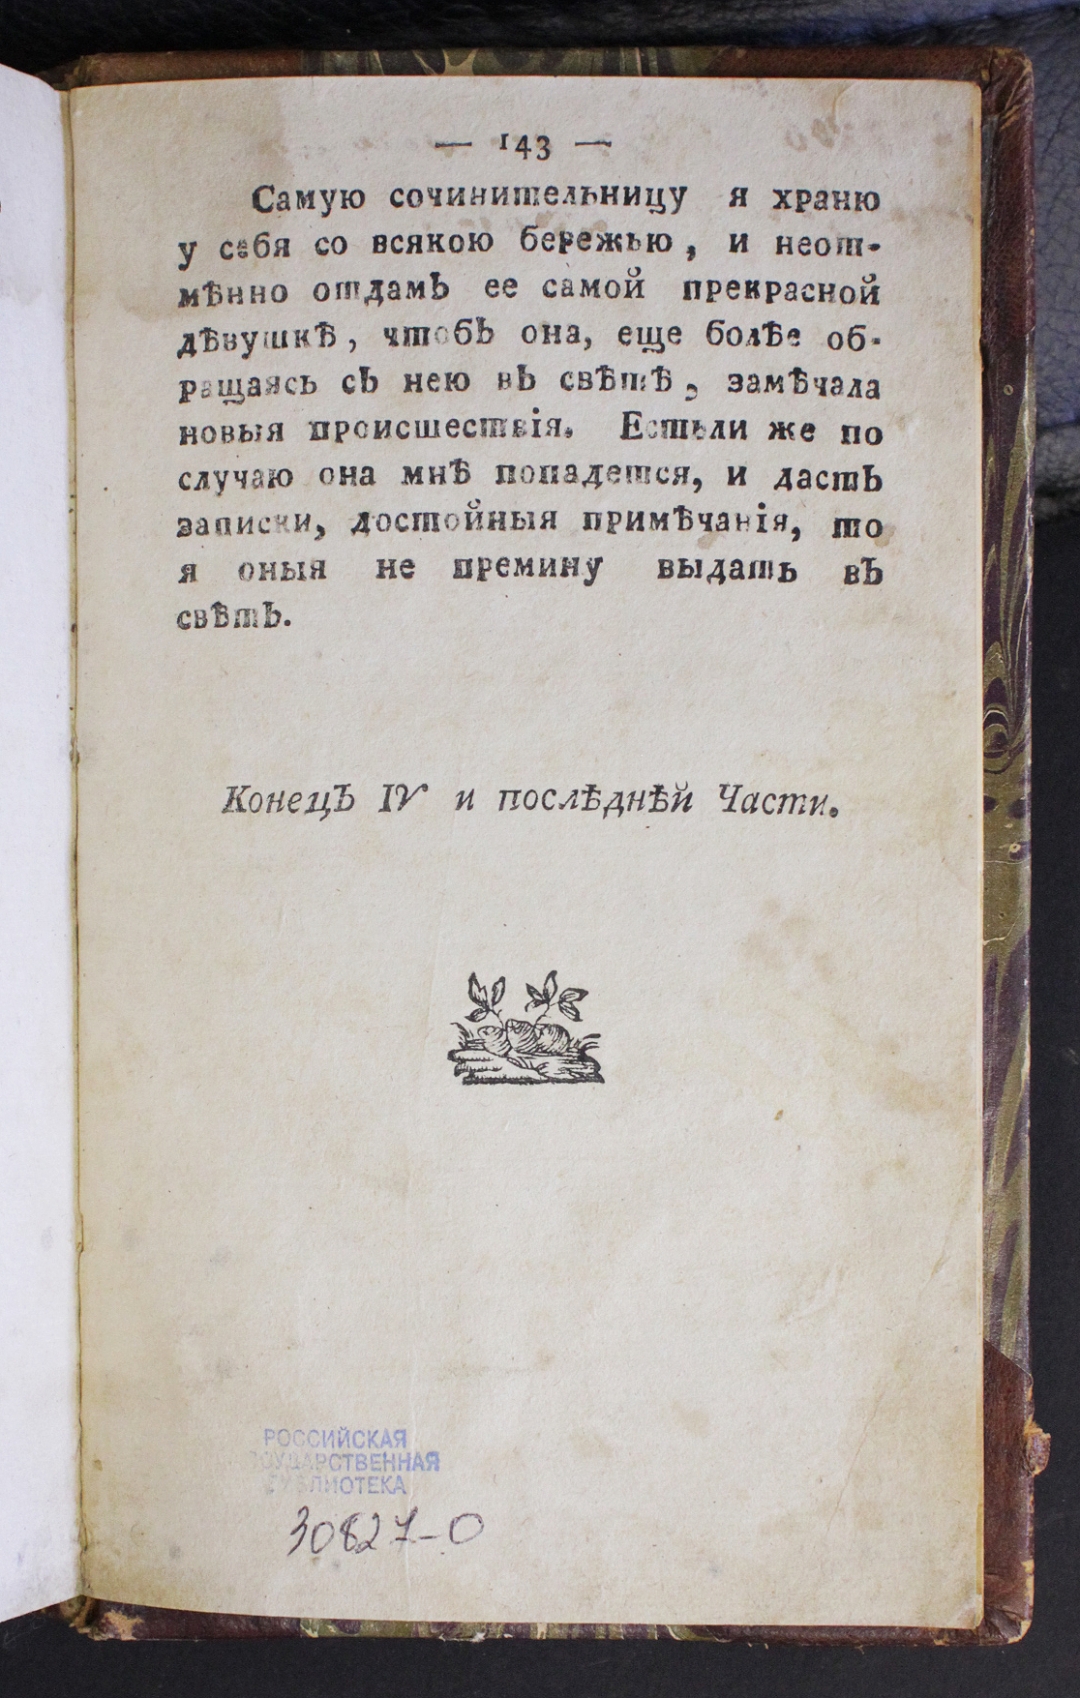 — 143 —
Самую сочинительницу я храню
у себя со всякою бережью, и неот-
мѣнно отдамъ ее самой прекрасной
дѣвушкѣ, чтобъ она, еще болѣе об-
ращаясь съ нею въ свѣтѣ, замѣчала
новыя происшествія. Естьли же по
случаю она мнѣ попадется, и дастъ
записки, достойныя примѣчанія, то
я оныя не премину выдать въ
свѣтъ.
Конецъ IV и послѣднѣй Части.
РОССИЙСКАЯ
ГОСУДАРСТВЕННАЯ
БИБЛИОТЕКА
30827-0